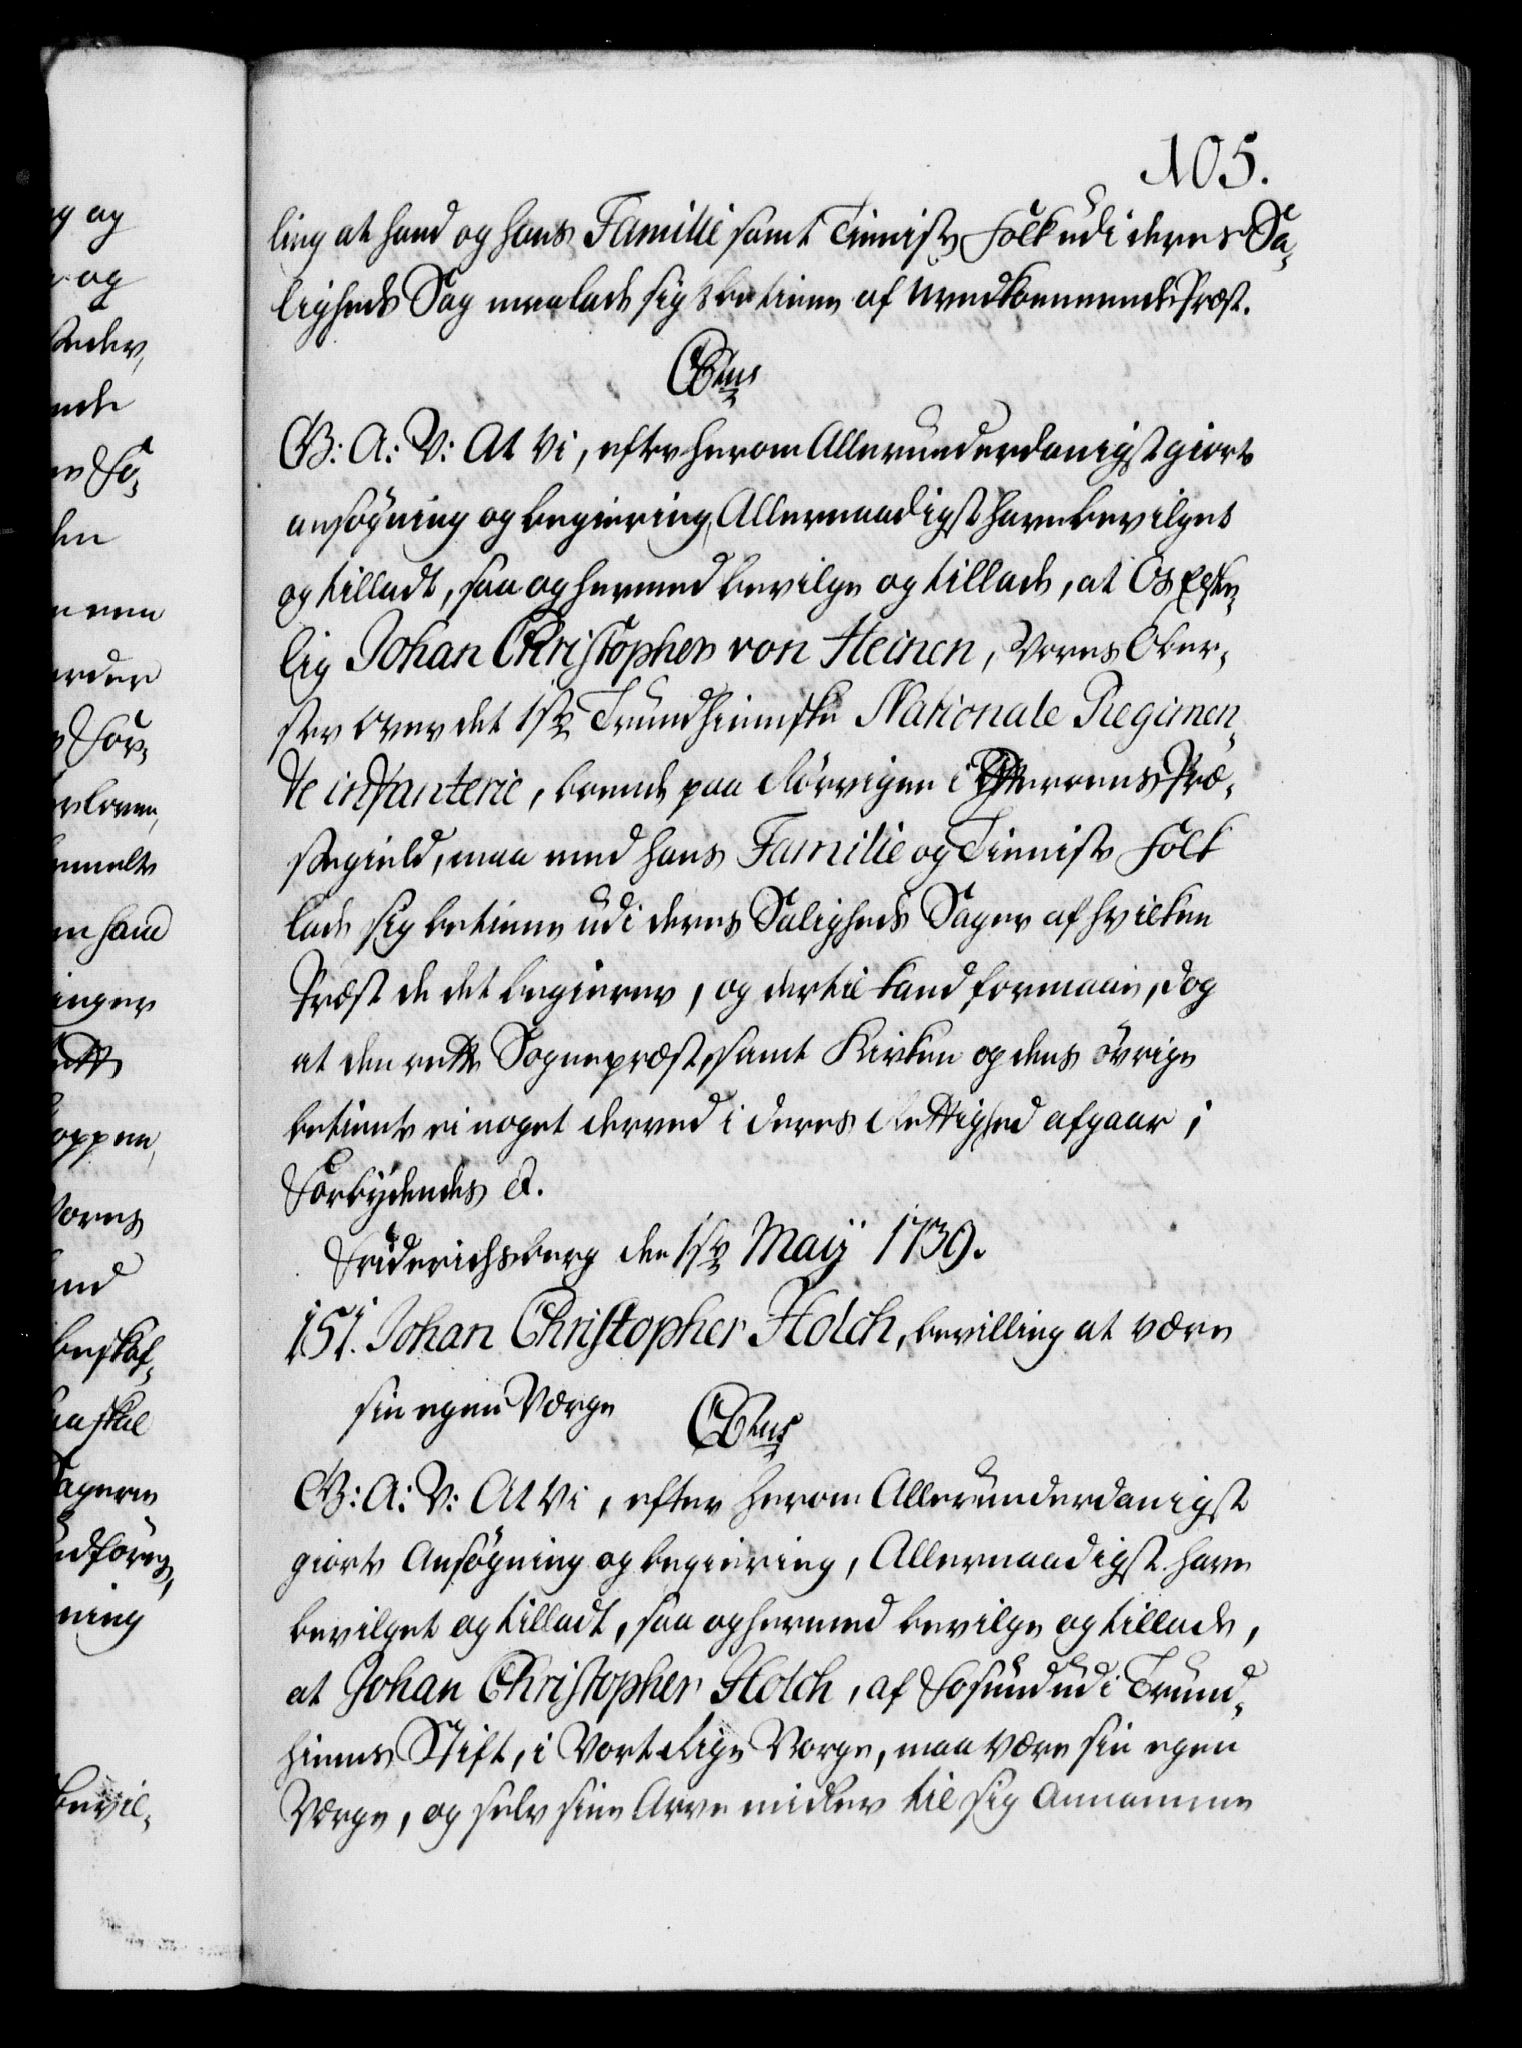 105.
ling at hand og hans Familie samt Tieniste Folk udi deres Sa-
ligheds Sag maa lade sig betiene af uvedkommende Præst.
C6tus
G: A: V: At Vi, efter herom Allerunderdanigst giorte
ansøgning og begiering, Allernaadigst have bevilget
og tilladt, saa og hermed bevilge og tillade, at Os Elske-
lig Johan Christopher von Heinen, Vores Ober-
ster over det 1ste Trundhiemske Nationale Regimen-
te infanterie, boende paa Rørvigen i Werrens Præ-
stegield, maa med hans Familie og Tieniste Folk
lade sig betiene udi deres Saligheds Sager af hvilken
Præst de det begierer, og dertil kand formaae, dog
at den rette Sognepræst, samt Kirken og dens øvrige
betiente ei noget derved i deres Rettighed afgaar;
Forbydendes &.
Friderichsberg den 1ste Maij 1739.
151. Johan Christopher Holch, bevilling at være
sin egen Værge
C6tus
G: A: V: At Vi, efter herom Allerunderdanigst
giorte Ansøgning og begiering, Allernaadigst have
bevilget og tilladt, saa og hermed bevilge og tillade,
at Johan Christopher Holch, af Fosund udi Trund-
hiems Stift, i Vort Rige Norge, maa være sin egen
Værge, og selv sine Arve midler til sig annamme